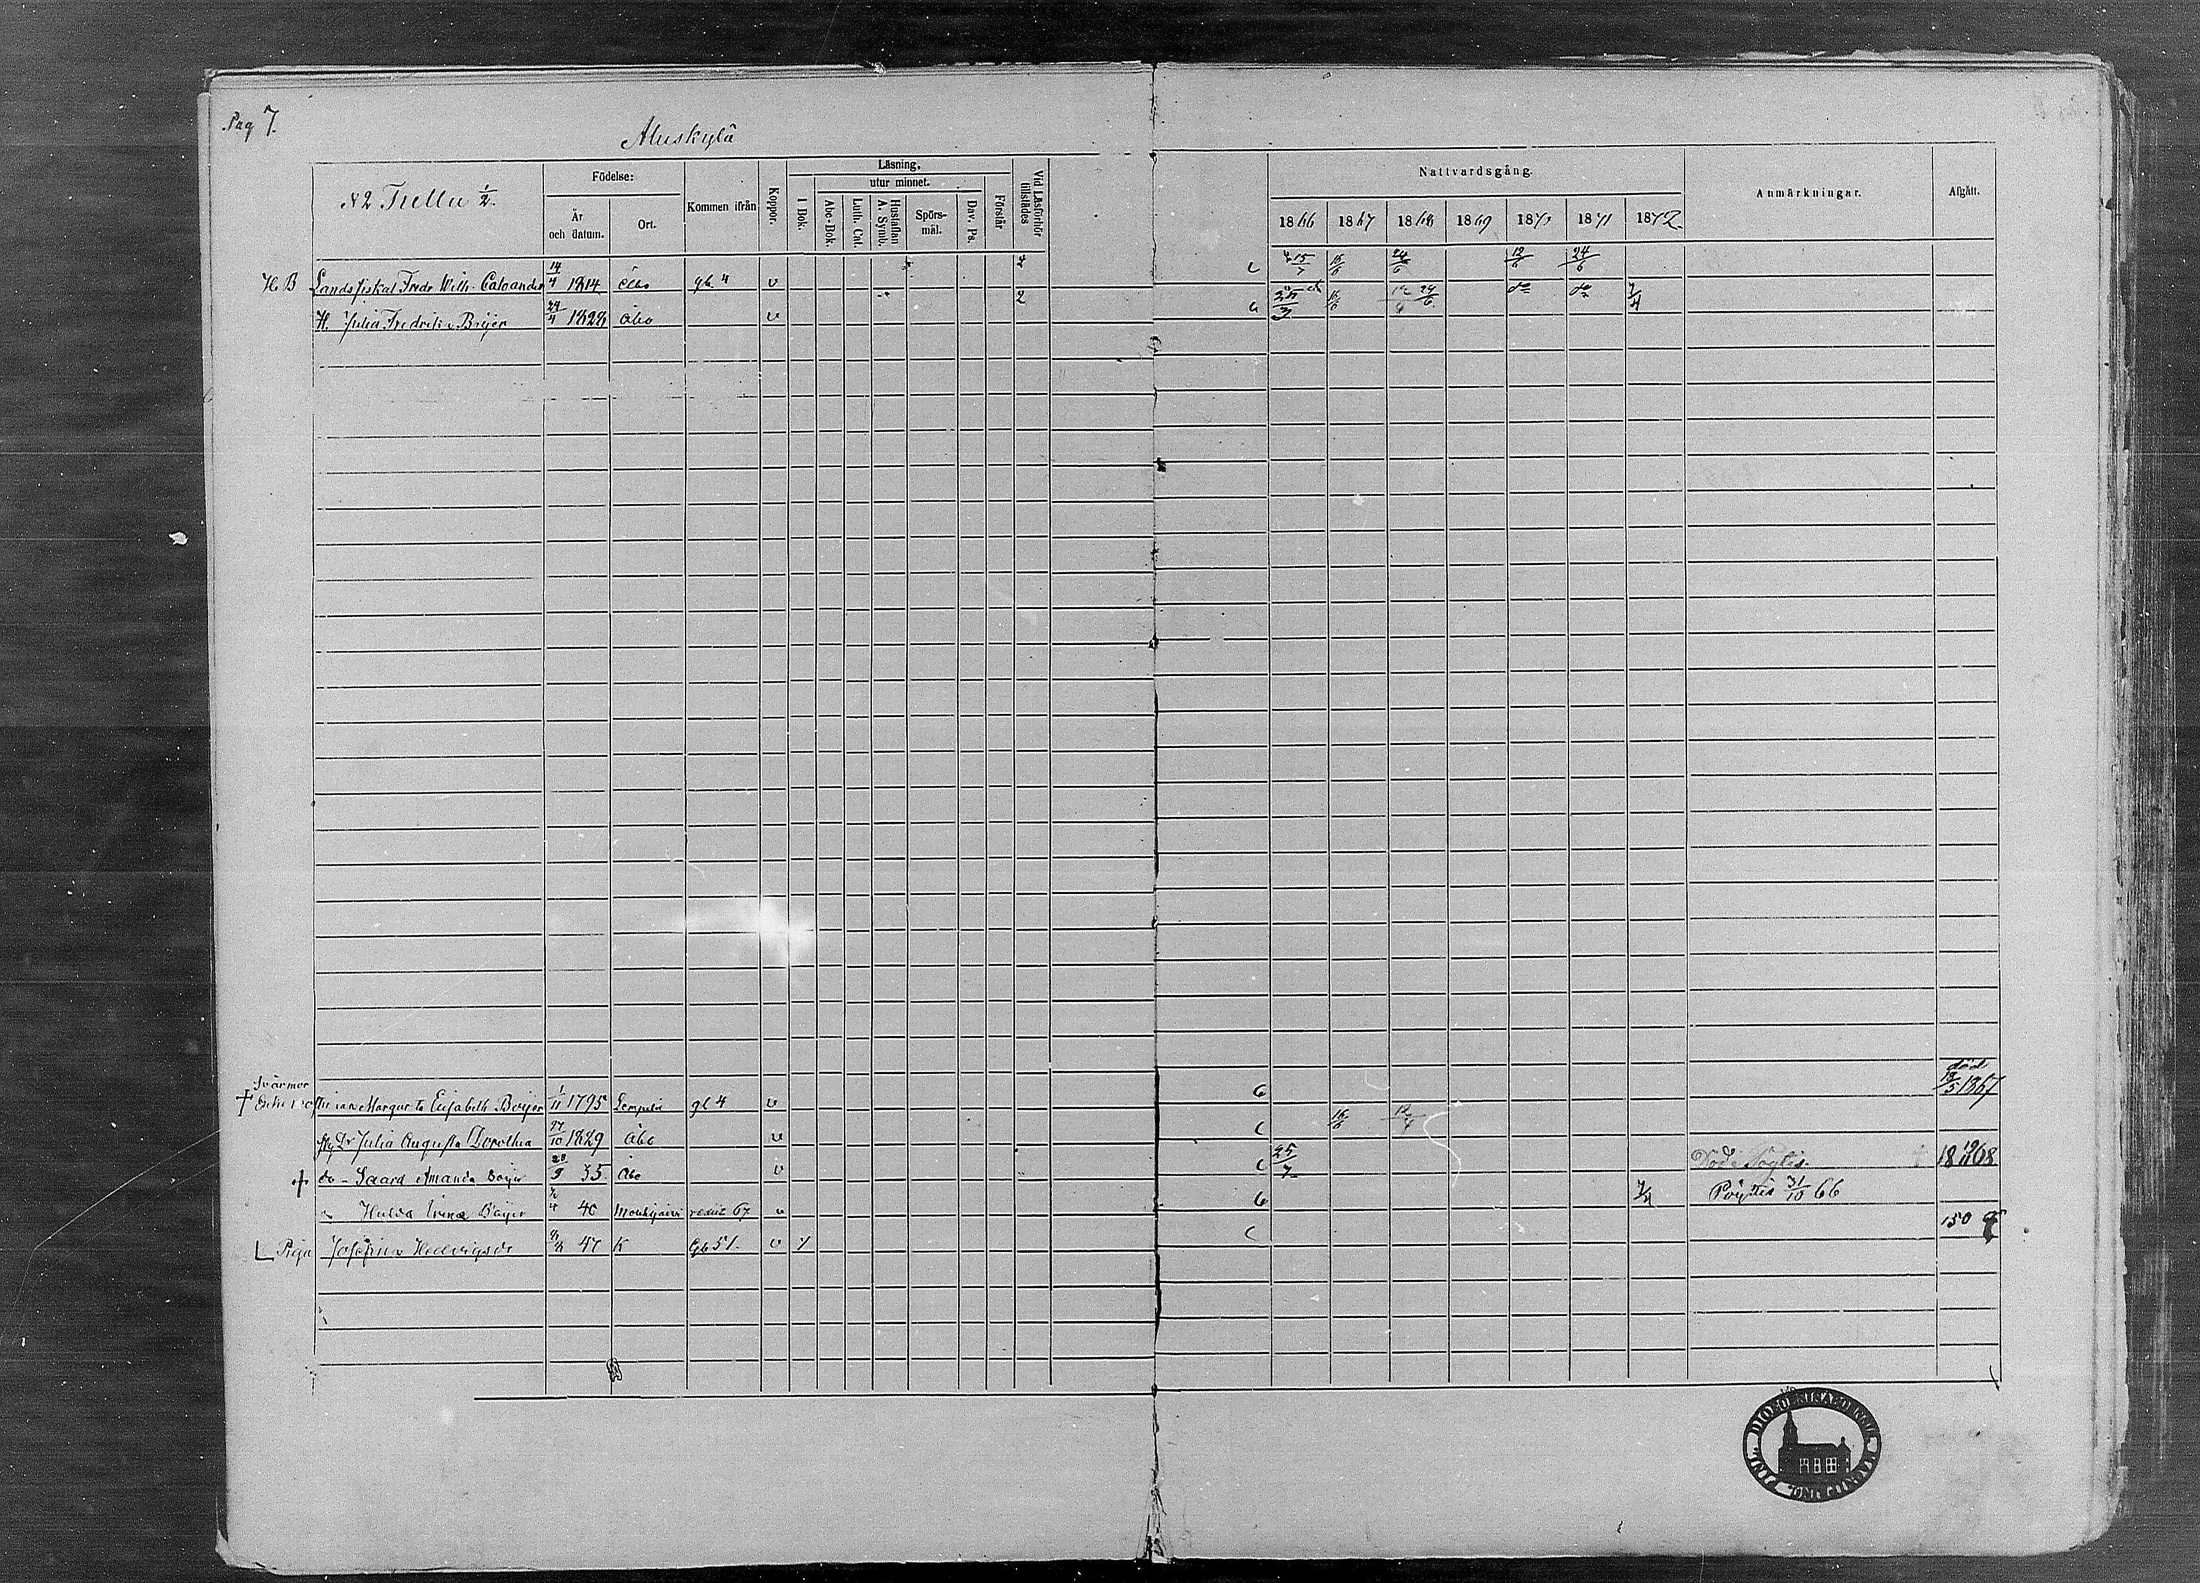 Pag 7.
Aluskylä
N2 Tullu 1/2.
Födelse:
År och datum.
Ort.
Kommen ifrån
Koppor.
Läsning,
utur minnet.
I Bok.
Abc-Bok.
Luth. Cat.
Hustaflan A. Symb.
Spörs-mål.
Dav. Ps.
Förstår
Vid Läsförhör tillstädes
Nattvardsgång.
1866 1867 1868 1869 1870 1871 1872
Anmärkningar.
Afgått.
H B Landsfiskal Fredr Wilh. Caloander 14/4 1814 Åbo gb 4 v 2 15/7 16/6 24/6 12/6 24/6
H. Julia Fredrika Böijer 24/4 1828 Åbo v 2 16/6 24/6 do do 7/4
Svärmor
Margareta Elisabeth Böijer 1/11 1795 Lempälä gb 4 v död 12/5 1867
Dr Julia Augusta Dorothea 27/10 1829 Åbo v 16/6 12/4
do - Saara Amanda Böijer 28/9 35. Åbo v 25/7 Död i Pöytis. 18 19/11 68
Hulda Irene Böijer 40 Mouhijärvi 67 v 7/4 Pöytis 31/10 66
Piga Josefina Hedvigsdr 47 K Gb 51. v 150